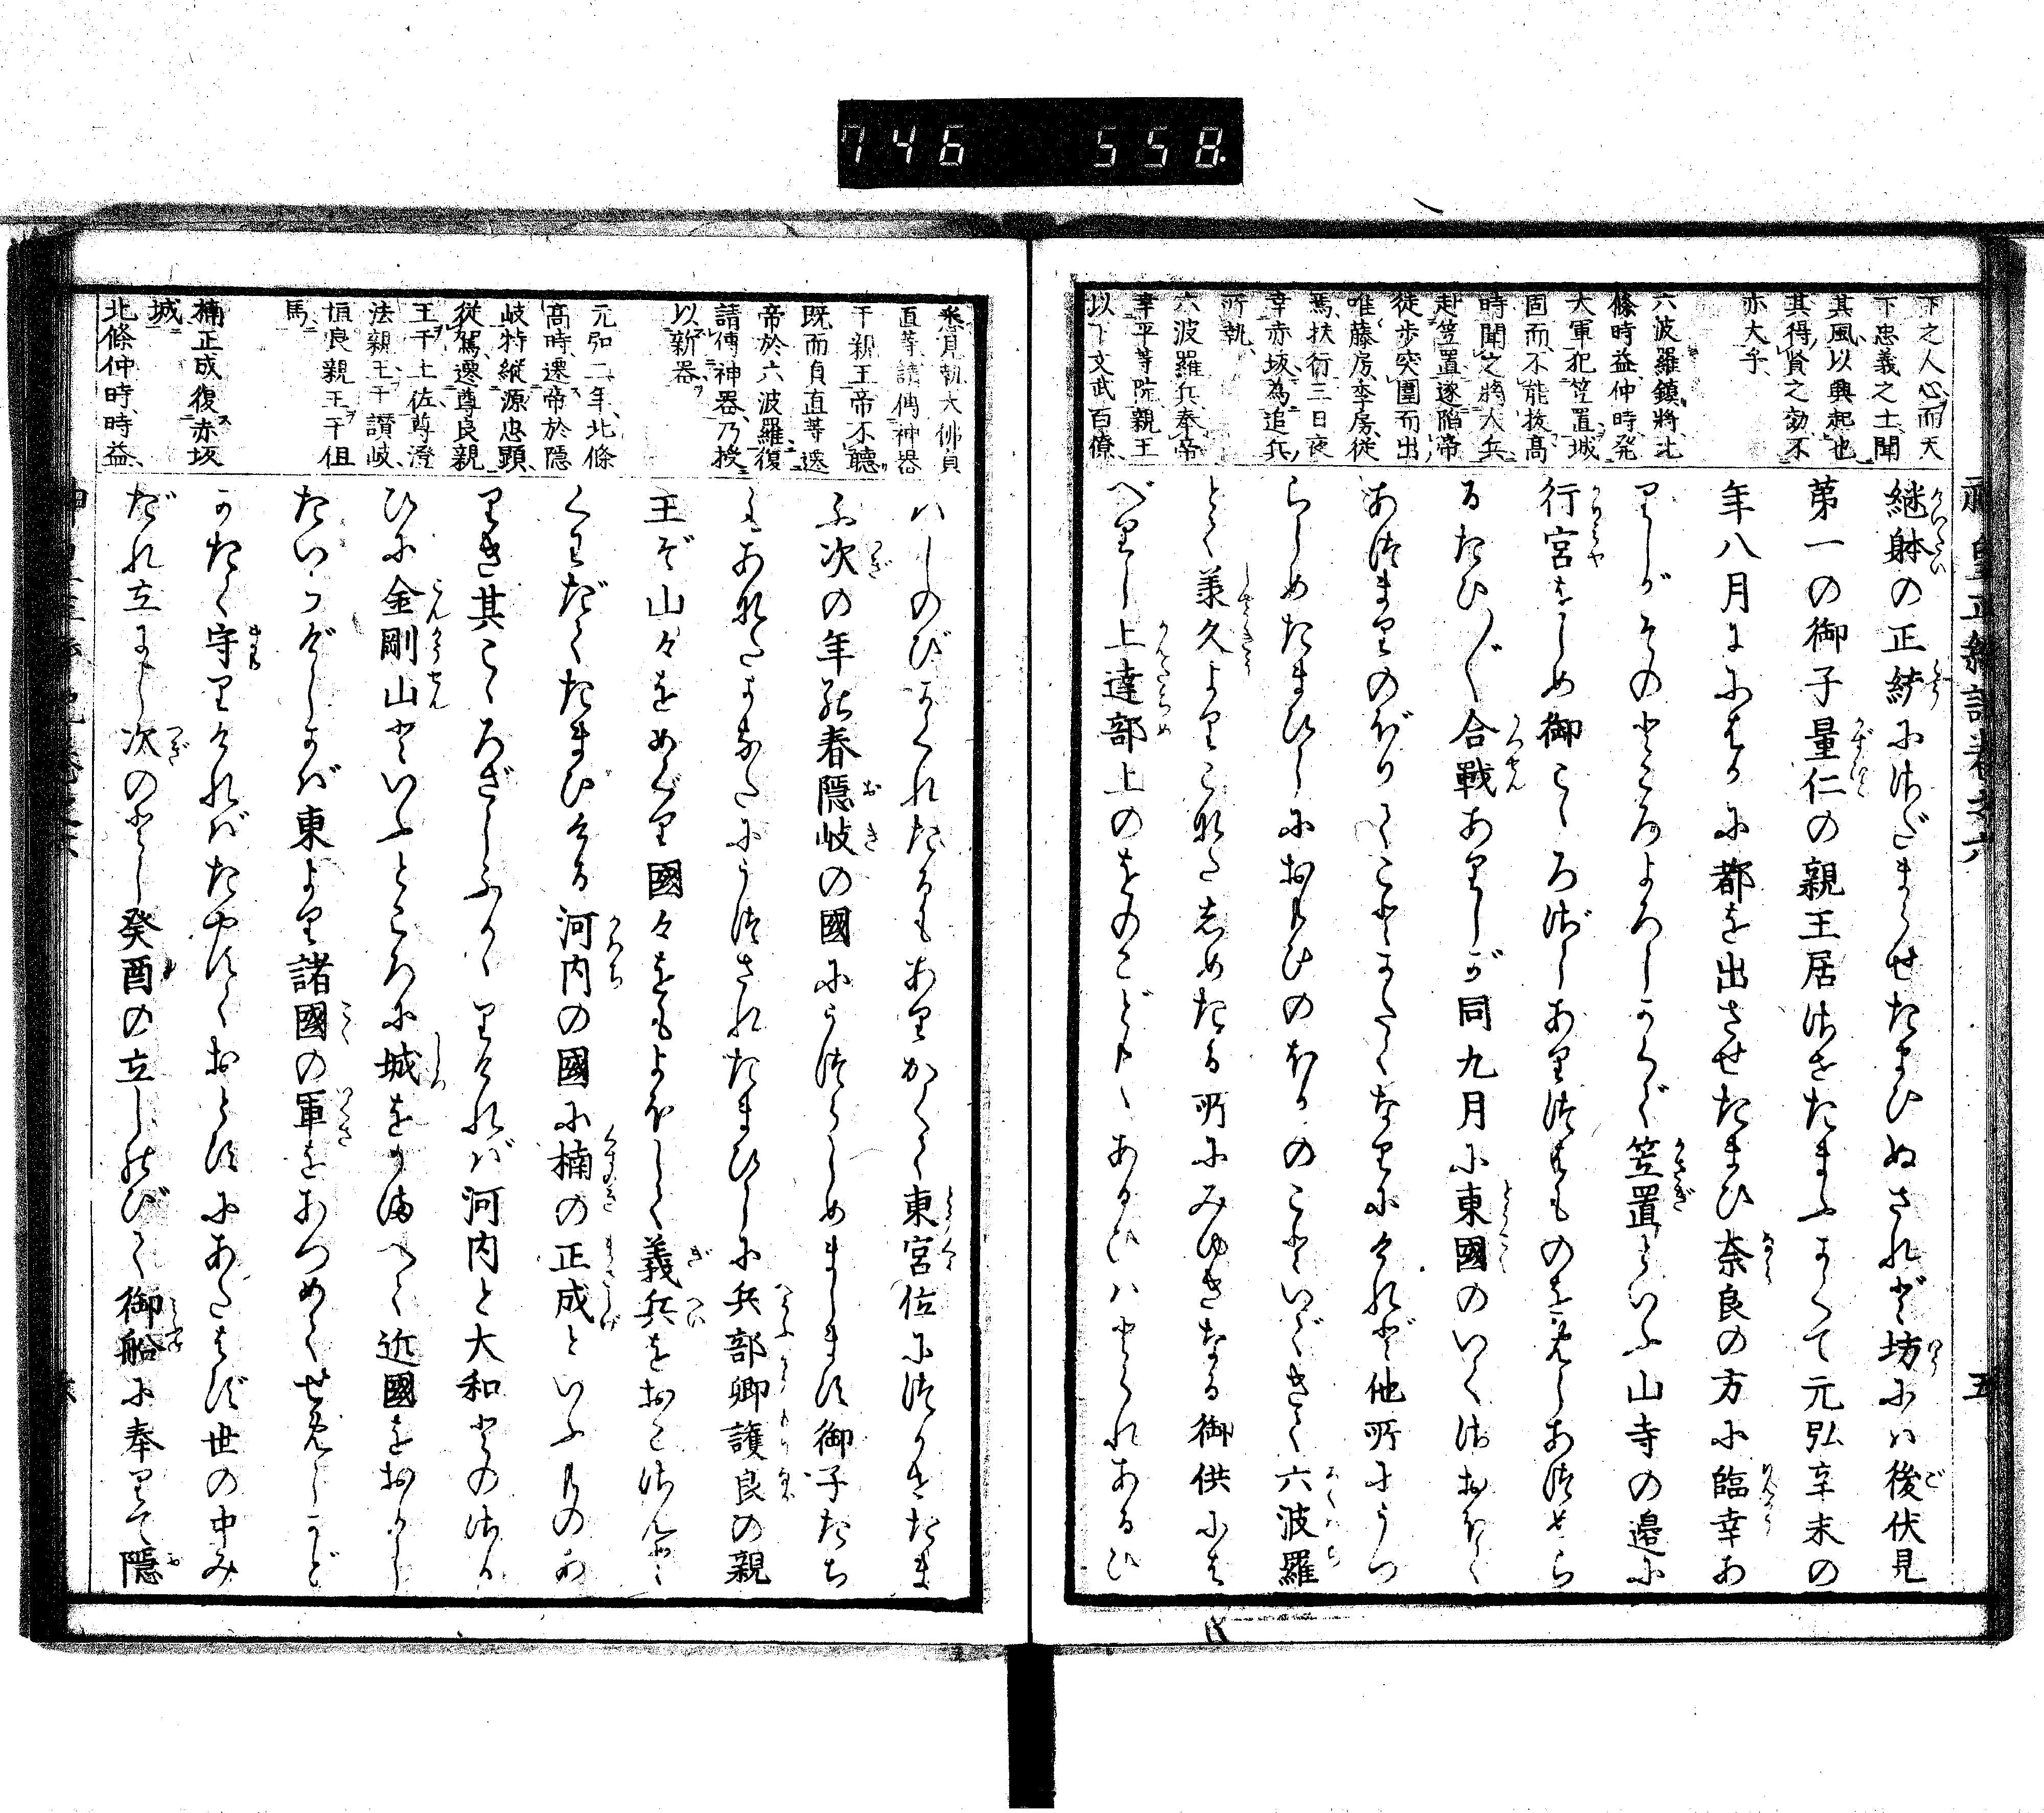 746 558
下之人心而天
下忠義之士聞
其風以興起也
其得賢之効不
亦大乎
六波羅鎮將北
條時益仲時発
大軍犯笠置城
固而不能抜高
時聞之將大兵
赴笠置遂陥帝
徒歩突圍而出
唯藤房季房從
焉扶行三日夜
幸赤坂為追兵
所執
六波羅兵奉帝
幸平等院親王
以下文武百僚
継躰の正統にさだまらせたまひぬされど坊にハ後伏見
第一の御子量仁の親王居させたまふかくて元弘辛未の
年八月ににはかに都を出させたまひ奈良の方に臨幸あ
りしがそのところよろしからで笠置といふ山寺の邊に
行宮をしめ御こゝろざしあるつはものをめしあつめら
るたび〳〵合戰ありしが同九月に東國のいくさおほく
あつまりのぼりてことかたくなりにければ他所にうつ
らしめたまひしにおもひのほかのこといできて六波羅
とて羕久よりこなたしめたる所にみゆきなる御供には
べりし上達部上のをのこどもゝあるひハとられあるひ
悉見執大佛貞
直等請傳神器
于親王帝不聽
既而貞直等遷
帝於六波羅復
請傳神器乃授
以新器
元弘二年北條
高時遷帝於隠
岐特縦源忠顕
從駕遷尊良親
王于土佐尊澄
法親王于讃岐
恒良親王于但
馬
楠正成復赤坂
城
北條仲時時益
ハしのびかくれたるもありかくて東宮位につかせたま
ふ次の年の春隠岐の國にうつらしめまします御子たち
もあなたかなたにうつされたまひしに兵部卿護良の親
王ぞ山々をめぐり國々をもよほして義兵をおこさんと
くはだてたまひける河内の國に楠の正成といふものあ
りき其こゝろざしふかゝりければ河内と大和とのさか
ひに金剛山といふところに城をかまへて近國をおかし
たいらげしかば東より諸國の軍をあつめてせめしかど
かたく守りければたやすくおとすにあたはず世の中み
だれ立にし次のとし癸酉の立しのびて御船に奉りて隠